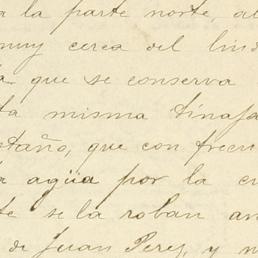 a la parte norte, al
muy cerca del lind
que se conserva
ta misma tinaja
taño, que con frecu
a agüa por la cu
te se la roban an
de Juan Perez, y n